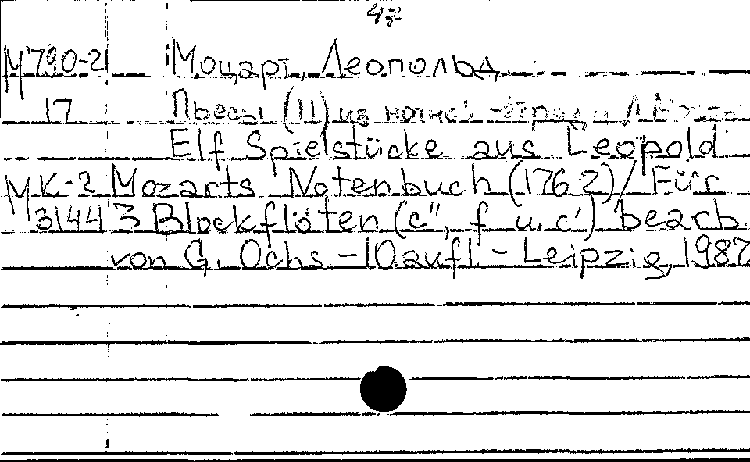 М790-2 Моцарт, Леопольд
17 Пьесы (11) из нотной
Elf Spielstücke aus Leopold
МК-2 Mozarts Notenbuch (1762)/ Für
3144 3 Blockflöten (c", f' u. c') bearb
von G. Ochs - 10aufl - Leipzig, 1987